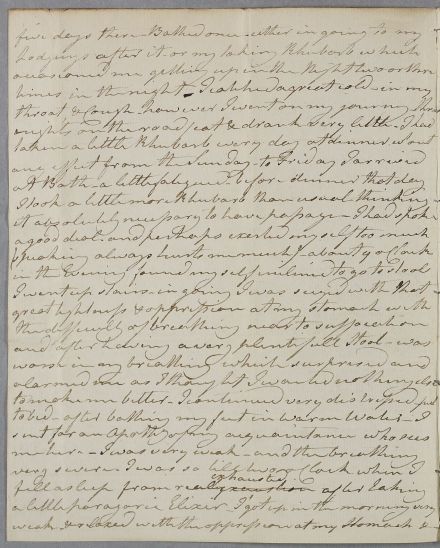 five days there - Bathed once - either in going to my
Lodgings after it or my taking Rhubarb which
occasioned me getting up in the Night two or three
times in the night - I catched a great cold - in my
throat & Cough - however I went on my journey three
nights on the road eat & drank very little - I had
taken a little Rhubarb every day at dinner without
any effect from the Sunday - to Friday I arrived
at Bath - a little fatigued - before dinner that day
I took a little more Rhubarb than usual thinking
it absolutely necessary to have passage - I had spoke
a good deal - and perhaps exerted myself too much
(speaking always hurts me much) - about 7 o Clock
in the Evening found myself inclined to go to stool
I went up stairs - in going I was seized with that
great tightness & oppression at my stomach with
the difficulty of breathing near to suffocation
and after having a very plentifull Stool - was
worse in my breathing which surprised and
alarmed me as I thought I wanted nothing else
to make me better - I continued very distressed, got
to bed - after bathing my feet in warm Water - I
sent for an Apothy of my acquaintance who sees
me here - I was very weak - and the breathing
very severe - I was so till two o Clock when I
exhausted
fell asleep from real after taking
a little paragoric Elixer - I got up in the morning very
weak & relaxed with the oppression at my Stomach &